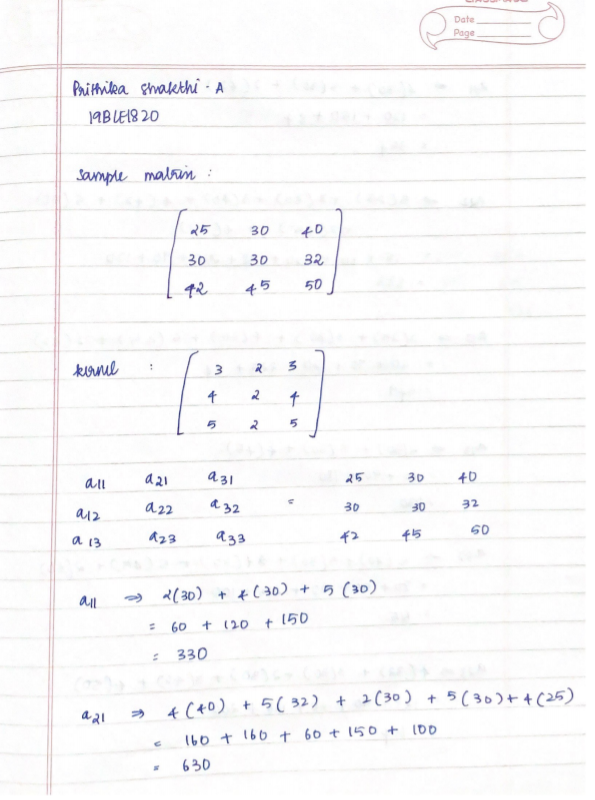 Date
Page
Prithika Shakthi - A
19BLE1820
Sample matrix :
25 30 40
30 30 32
42 45 50
kernel : 3 2 3
4 2 4
5 2 5
a11 a21 a31 25 30 40
a12 a22 a32 = 30 30 32
a13 a23 a33 42 45 50
a11 ⇒ 2(30) + 4(30) + 5(30)
= 60 + 120 + 150
= 330
a21 ⇒ 4(40) + 5(32) + 2(30) + 5(30) + 4(25)
= 160 + 160 + 60 + 150 + 100
= 630